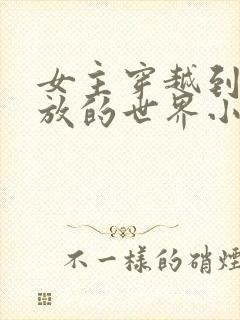 女主穿越到
放的世界小
不一样的硝煙